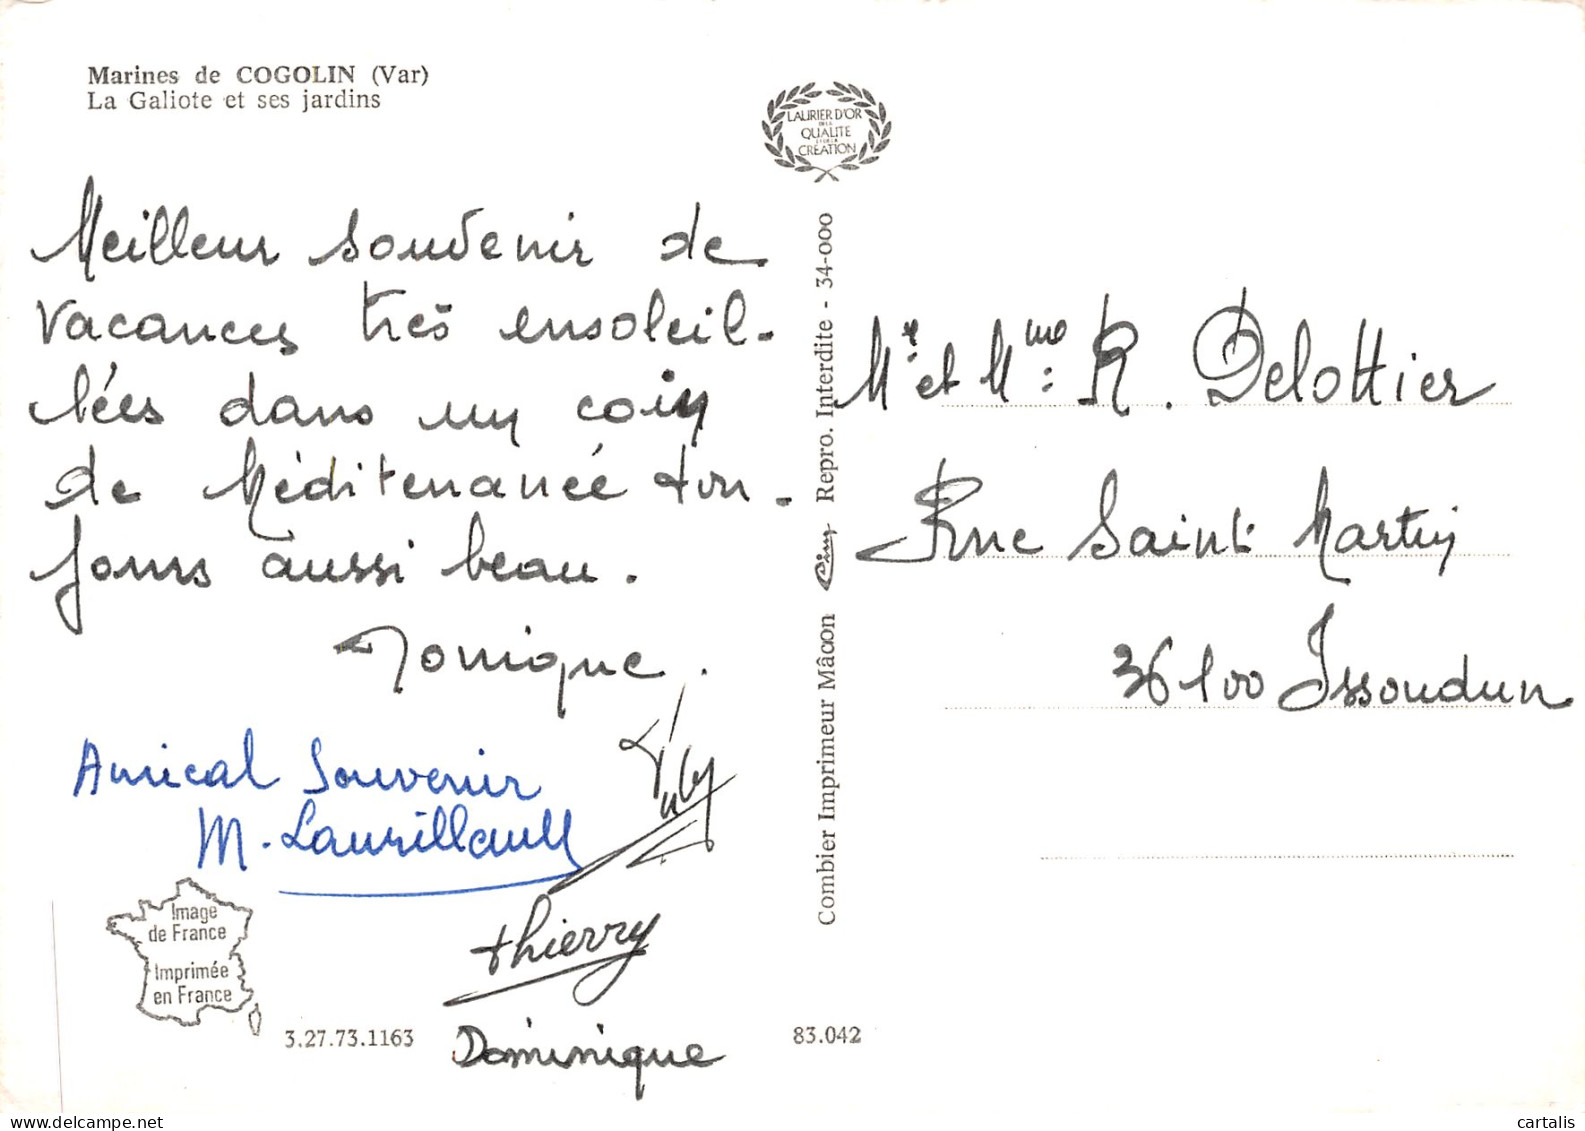 Marines de COGOLIN (Var)
La Galiote et ses jardins
LAURIER D'OR
DE LA
QUALITE
ET DE LA
CRÉATION
Meilleur souvenir de
vacances très ensoleil-
lées dans un coin
de Méditerranée tou-
jours aussi beau.
Monique.
Amical Souvenir
M. Laurillault
Thierry
Dominique
Image
de France
Imprimée
en France
3.27.73.1163
83.042
Combier Imprimeur Mâcon Cim Repro. Interdite - 34-000
Mr et Mme : R. Delottier
Rue Saint Martin
36100 Issoudun
cartalis